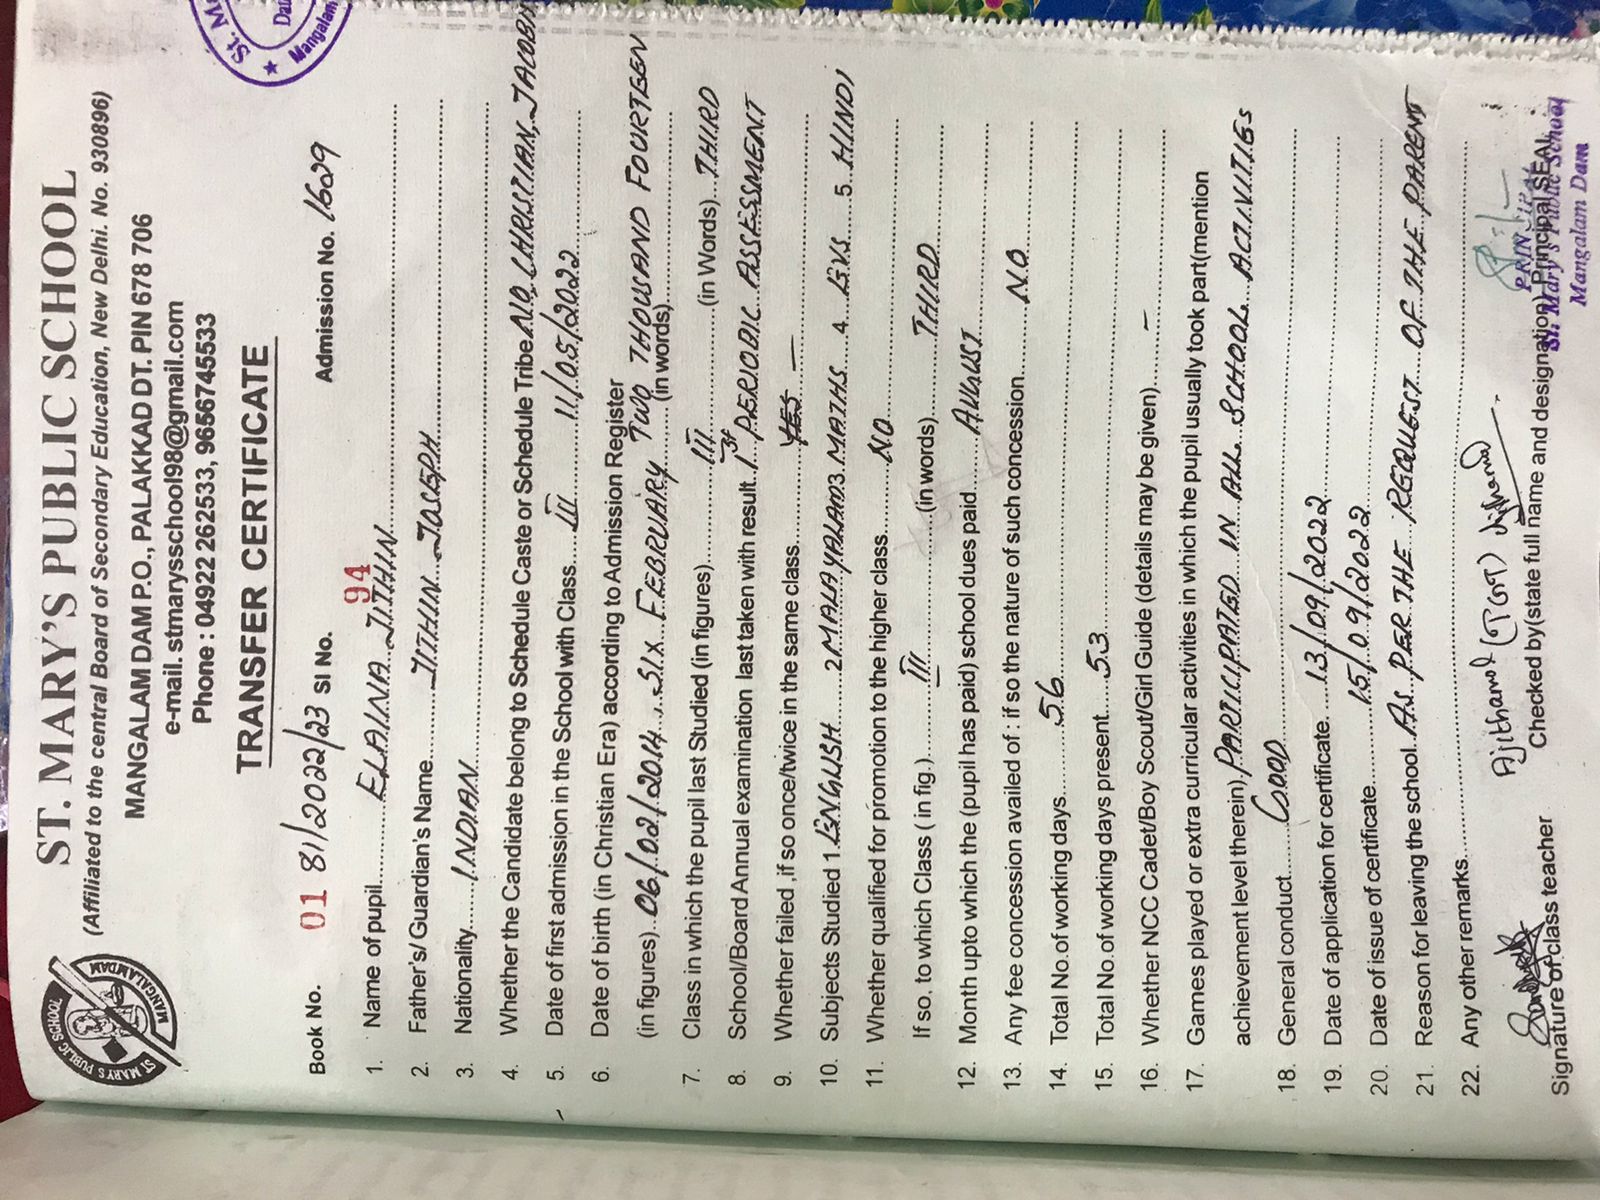 ST. MARY'S PUBLIC SCHOOL
(Affiliated to the central Board of Secondary Education, New Delhi. No. 930896)
MANGALAM DAM P.O., PALAKKAD DT. PIN 678 706
e-mail. stmarysschool98@gmail.com
Phone : 04922 262533, 9656745533
ST MARY'S PUBLIC SCHOOL
MANGALAMDAM
St. M
Mangalam
TRANSFER CERTIFICATE
Book No. 01 81/2022/23 Sl No. 94 Admission No. 1609
1. Name of pupil ELAINA JITHIN
2. Father's/ Guardian's Name JITHIN JOSEPH
3. Nationality INDIAN
4. Whether the Candidate belong to Schedule Caste or Schedule Tribe NO, CHRISTIAN, JACOBI
5. Date of first admission in the School with Class III 11/05/2022
6. Date of birth (in Christian Era) according to Admission Register
(in figures) 06/02/2014, SIX FEBRUARY TWO THOUSAND FOURTEEN (in words)
7. Class in which the pupil last Studied (in figures) III (in Words) THIRD
8. School/Board Annual examination last taken with result 1st PERIODIC ASSESSMENT
9. Whether failed ,if so once/twice in the same class YES —
10. Subjects Studied 1. ENGLISH 2 MALAYALAM 3 MATHS 4. EVS 5. HINDI
11. Whether qualified for promotion to the higher class NO
If so, to which Class ( in fig.) III (in words) THIRD
12. Month upto which the (pupil has paid) school dues paid AUGUST
13. Any fee concession availed of : if so the nature of such concession NO
14. Total No.of working days 56
15. Total No.of working days present 53
16. Whether NCC Cadet/Boy Scout/Girl Guide (details may be given) —
17. Games played or extra curricular activities in which the pupil usually took part(mention
achievement level therein) PARTICIPATED IN ALL SCHOOL ACTIVITIES
18. General conduct GOOD
19. Date of application for certificate 13/09/2022
20. Date of issue of certificate 15/09/2022
21. Reason for leaving the school AS PER THE REQUEST OF THE PARENT
22. Any other remarks
Ajithamol (TGT)
Signature of class teacher Checked by(state full name and designation) Principal SEAL
PRINCIPAL
St. Mary's Public School
Mangalam Dam